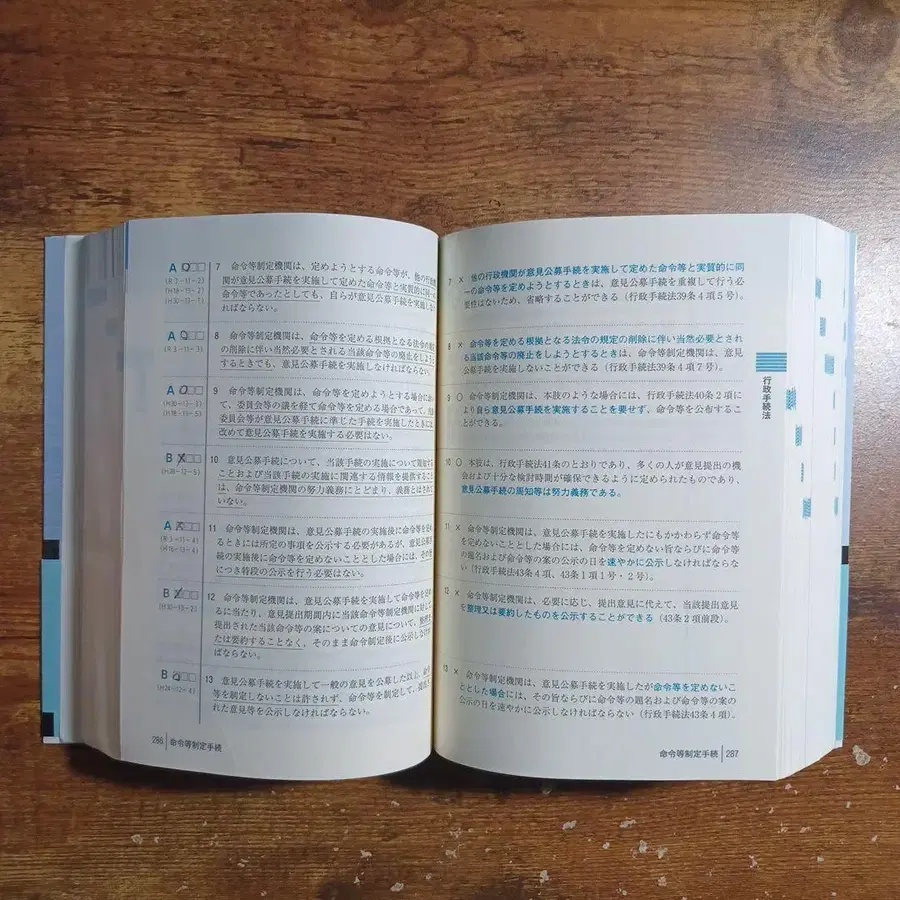 A
(R3-11-2)
(H18-13-2)
(H30-13-1)
7 命令等制定機関は、定めようとする命令等が、他の行政機
関が意見公募手続を実施して定めた命令等と実質的に同一の
命令等であったとしても、自らが意見公募手続を実施しなけ
ればならない。
A
(R3-11-3)
8 命令等制定機関は、命令等を定める根拠となる法令の規定
の削除に伴い当然必要とされる当該命令等の廃止をしようと
するときでも、意見公募手続を実施しなければならない。
A
(H30-13-3)
9 命令等制定機関は、命令等を定めようとする場合におい
て、委員会等の議を経て命令等を定める場合であって、当該
委員会等が意見公募手続に準じた手続を実施したときには、
改めて意見公募手続を実施する必要はない。
B
(H28-12-5)
10 意見公募手続について、当該手続の実施について周知する
ことおよび当該手続の実施に関連する情報を提供することに
は、命令等制定機関の努力義務にとどまり、義務とはされて
いない。
A
(R3-11-4)
(H18-13-4)
11 命令等制定機関は、意見公募手続の実施後に命令等を定め
るときには所定の事項を公示する必要があるが、意見公募手
続の実施後に命令等を定めないこととした場合には、その旨
につき特段の公示を行う必要はない。
B
(H30-13-2)
12 命令等制定機関は、意見公募手続を実施して命令等を定め
るに当たり、意見提出期間内に当該命令等制定機関に対して
提出された当該命令等の案についての意見について、整理ま
たは要約することなく、そのまま命令制定後に公示しなけれ
ばならない。
B
(H24-12-4)
13 意見公募手続を実施して一般の意見を公募した以上、命令
等を制定しないことは許されず、命令等を制定して、提出さ
れた意見等を公示しなければならない。
286 命令等制定手続
7 × 他の行政機関が意見公募手続を実施して定めた命令等と実質的に同
一の命令等を定めようとするときは、意見公募手続を重複して行う必
要性はないため、省略することができる(行政手続法39条4項5号)。
8 × 命令等を定める根拠となる法令の規定の削除に伴い当然必要とされ
る当該命令等の廃止をしようとするときは、命令等制定機関は、意見
公募手続を実施しないことができる(行政手続法39条4項7号)。
9 ○ 命令等制定機関は、本肢のような場合には、行政手続法40条2項に
より自ら意見公募手続を実施することを要せず、命令等を公布するこ
とができる。
10 ○ 本肢は、行政手続法41条のとおりであり、多くの人が意見提出の機
会および十分な検討時間が確保できるように定められたものであり、
意見公募手続の周知等は努力義務である。
11 × 命令等制定機関は、意見公募手続を実施したにもかかわらず命令等
を定めないこととした場合には、命令等を定めない旨ならびに命令等
の題名および命令等の案の公示の日を速やかに公示しなければならな
い(行政手続法43条4項、43条1項1号・2号)。
12 × 命令等制定機関は、必要に応じ、提出意見に代えて、当該提出意見
を整理又は要約したものを公示することができる(43条2項前段)。
13 × 命令等制定機関は、意見公募手続を実施したが命令等を定めないこ
ととした場合には、その旨ならびに命令等の題名および命令等の案の
公示の日を速やかに公示しなければならない(行政手続法43条4項)。
行政手続法
命令等制定手続 287